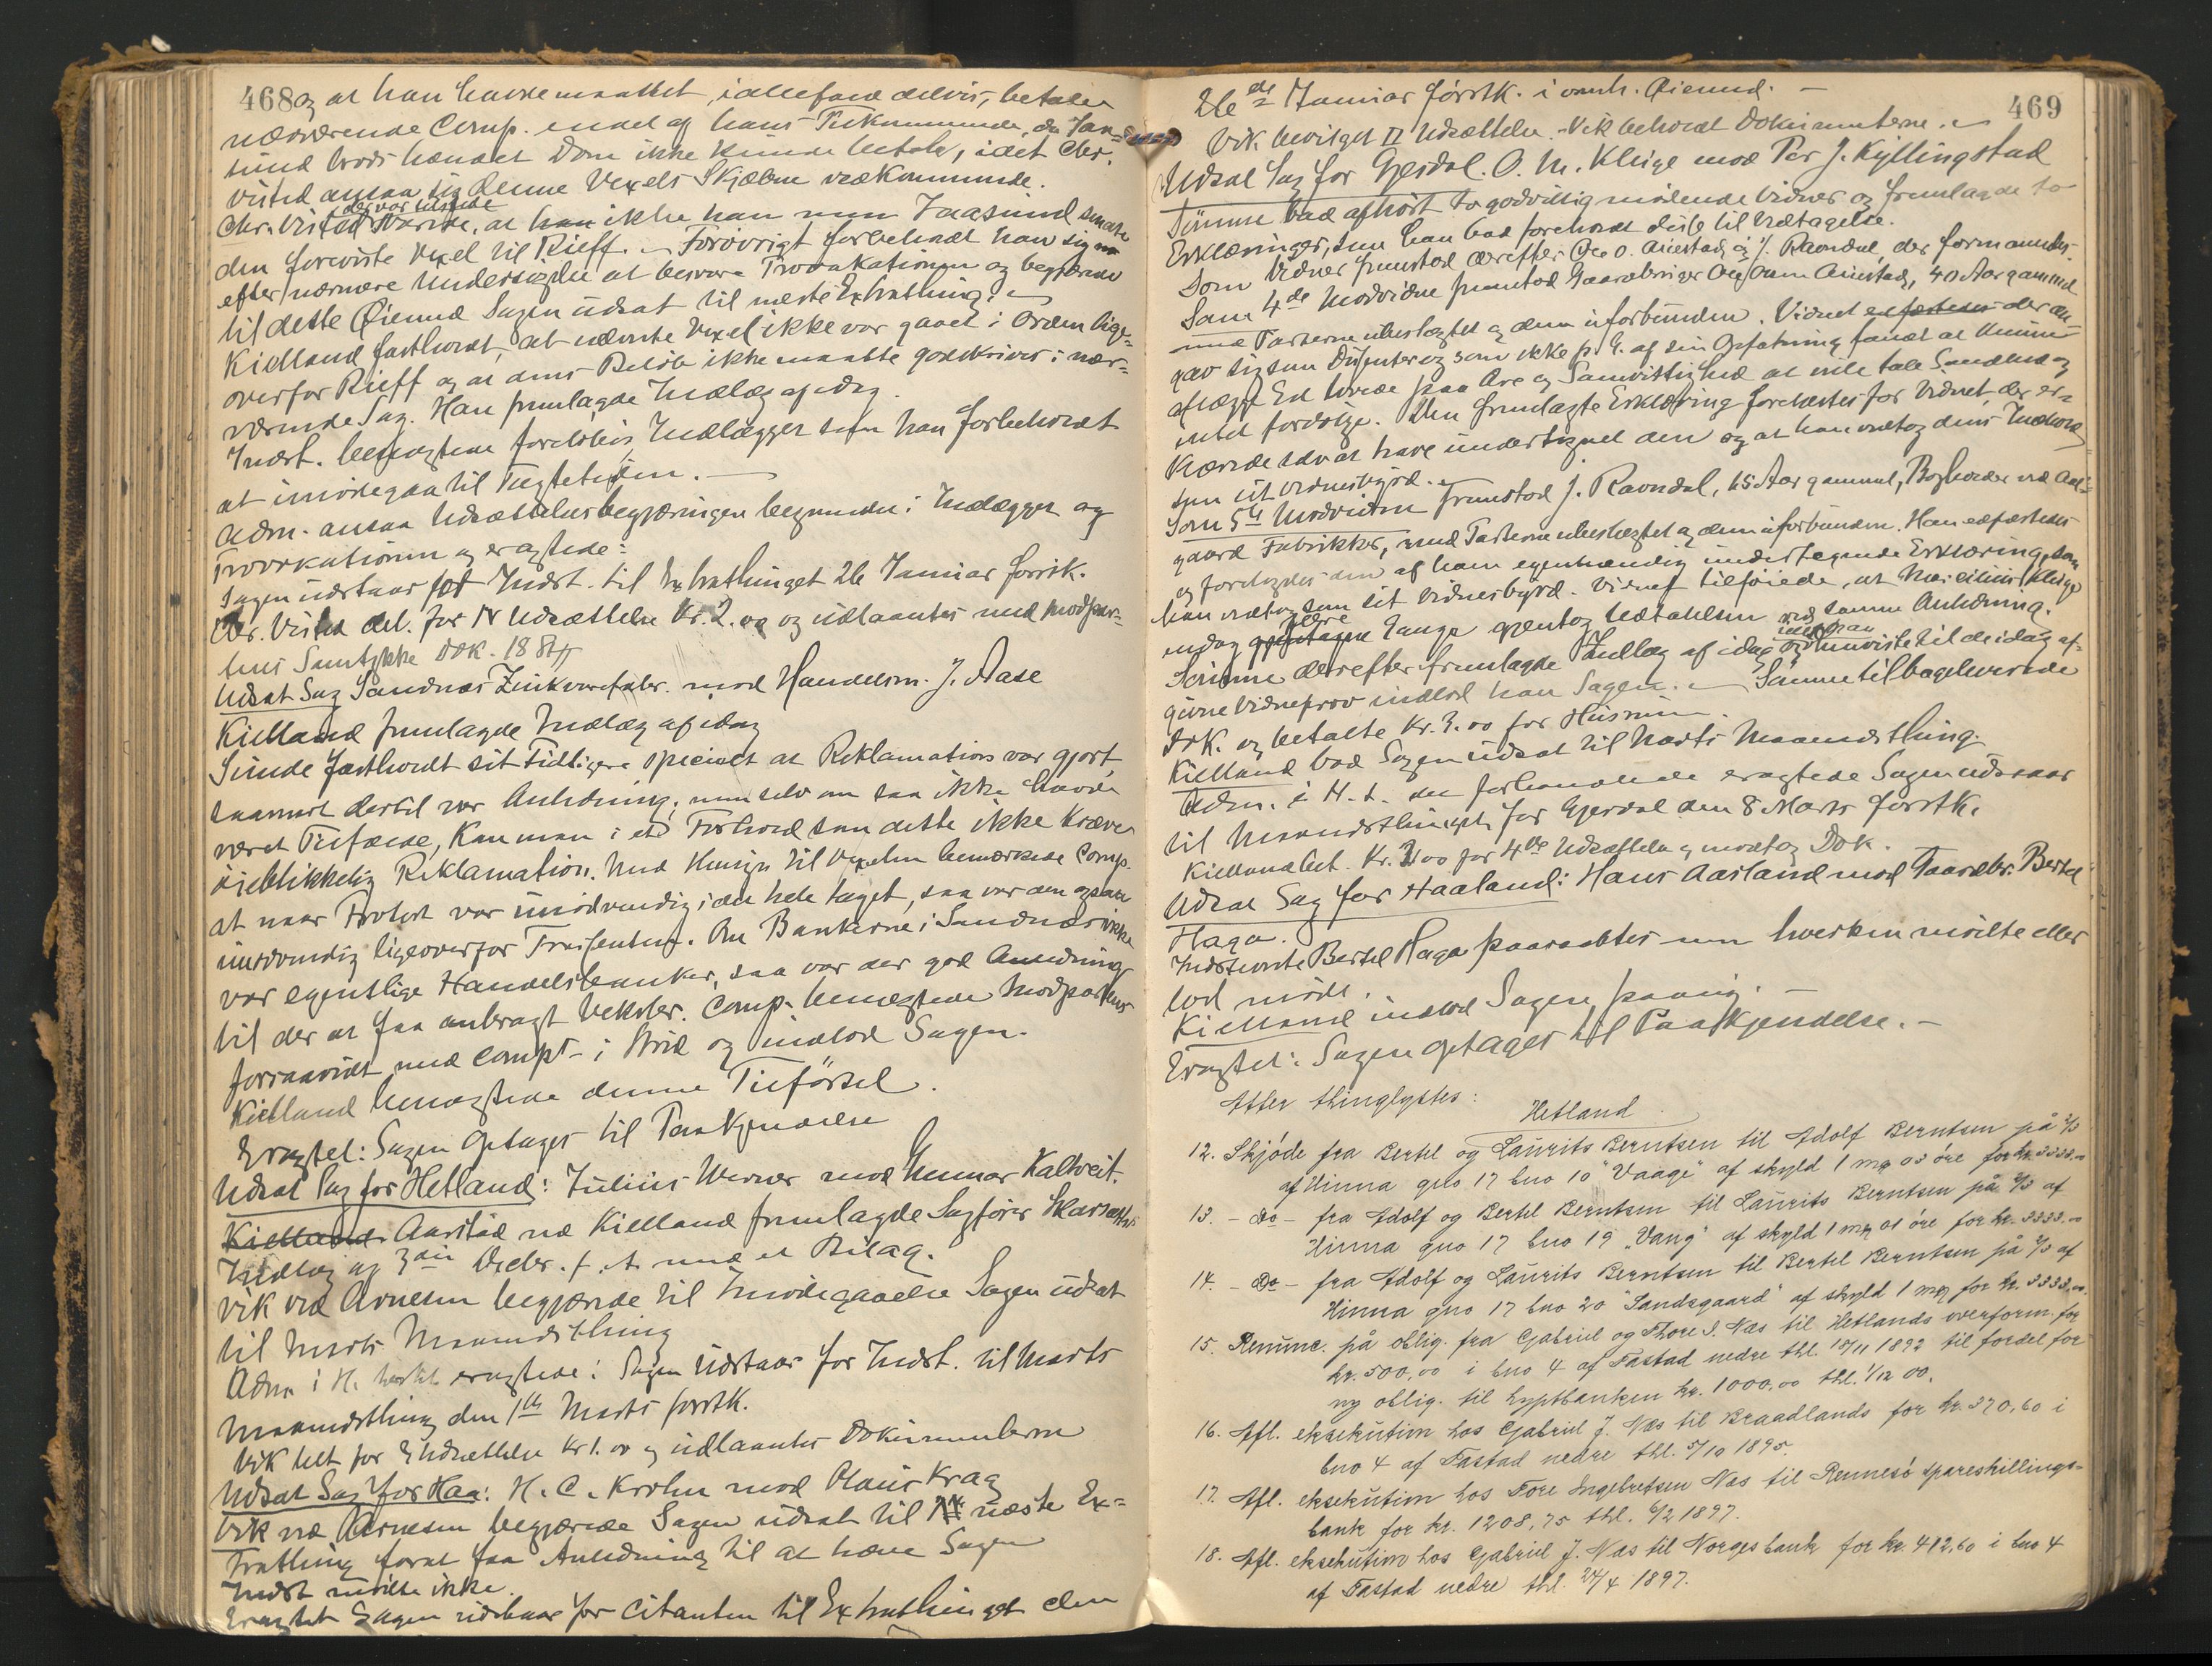 468
og at han havde maattet, iallefald delvis, betale
nærværende Comp. endel af hans Tilkommende, da Jan-
sund trods hændet Dom ikke kunde betale, idet Chr.
Visted ansaa sig denne Vexels Skjæbne vedkommende.
der var tilstede
Chr. Visted svarede, at han ikke han nun Jaasund senere
den foreviste Vexel til Rieff. – Forøvrigt forbeholdt han sig
efter nærmere Undersøgelse at besvare Provokationen og begjærede
til dette Øiemed Sagen udsat til næste Extrathing. –
Kielland fastholdt, at nævnte Vexel ikke var gaaet i Orden lige-
overfor Rieff og at dens Beløb ikke maatte godskrives i nær-
værende Sag. Han fremlagde Indlæg af idag.
Indst. benægtede foreløbig Indlægget som han forbeholdt
at imødegaa til Tægtetiden. –
Adm. ansaa Udsættelsesbegjæringen begrundet i Indlægget og
Provokationen og eragtede:
Sagen udstaar for Indst. til Extrathinget 26 Januar førstk.
Chr. Visted bet. for IV Udsættelse Kr. 2.00 og udlaantes med Modpar-
tens Samtykke Dok.
Udsat Sag Sandnæs Zinkvarefabr. mod Handelsm. J. Aase
Kielland fremlagde Indlæg af idag
Sunde fastholdt sit Tidligere specielt at Reklamation var gjort,
saasnart dertil var Anledning; men selv om saa ikke havde
været Tilfælde, kan man i et Forhold som dette ikke kræve
øieblikkelig Reklamation. Med Hensyn til Vexelen bemærkede Comp.
at naar Protest var unødvendig i det hele taget, saa var den ogsaa
unødvendig ligeoverfor Trassenten. Om Bankerne i Sandnæs ikke
var egentlige Handelsbanker, saa var der god Anledning
til der at faa anbragt Veksler. Comp. benægtede Modpartens
forsaavidt med Compt. i Strid og indlod Sagen.
Kielland benægtede denne Tilførsel.
Eragtet: Sagen optages til Paakjendelse
Udsat Sag for Hetland: Julius Werner mod Gunnar Kaltveit.
Kielland Aarstad ved Kielland fremlagde Sagfører
Indlæg og 3die Deler. f. A. med et Bilag.
Vik ved Arnesen begjærede til Imødegaaelse Sagen udsat
til Marts Maanedsthing
Adm. i H. eragtede: Sagen Udstaar for Indst. til Marts
Maanedsthing den 1ste Marts førstk.
Vik bet. for Udsættelse Kr 1.00 og udlaantes Dokumenterne
Udsat Sag for Haa: H. C. Krohn mod Olaus Krag
Vik ved Arnesen begjærede Sagen udsat til næste Ex-
trathing forat faa Anledning til at hæve Sagen
Indst mødte ikke.
Eragtet Sagen udstaar for Citanten til Extrathinget den
469
26de Januar førstk. i samh. Øiemed. –
Vik bevilget II Udsættelse. – Vik beholdt Dokumenterne. –
Udsat Sag for Gjesdal. O. M. Kleige mod Per J. Kyllingstad
Sømme bad afhørt to godvillig mødende Vidner og fremlagde to
Erklæringer, som han bad foreholdt disse til Vedtagelse.
Som Vidner fremstod derefter Ole O. Auestad og J. Ravndal, der formanedes.
Som 4de Modvidne fremstod Gaardbruger Ole Olsen Auestad, 40 Aar gammel
med Parterne ubeslægtet og dem uforbunden. Vidnet edfæstedes der an-
gav sig som Dissenter og som ikke p. G. af sin Opfatning fandt at kunne
aflægge Ed lovede paa Ære og Samvittighed at ville tale Sandhed og
intet fordølge. Den fremlagte Erklæring forelæstes for Vidnet, der er-
kjendte selv at have undertegnet den og at han vedtog dens Indhold
som sit Vidnesbyrd. –
Som 5te Modvidne fremstod J. Ravndal, 65 Aar gammel, Bogholder ved Aal-
gaards Fabrikker, med Parterne ubeslægtet og dem uforbunden. Han edfæstedes
og forelagdes den af ham egenhændig undertegnede Erklæring, som
han vedtog som sit Vidnesbyrd. Vidnet tilføiede, at Kleige
endog flere Gange gjentog Udtalelsen ved samme Anledning.
Sømme derefter fremlagde Indlæg af idag idet han henviste til de idag af-
givne Vidneprov indlod han Sagen. – Sømme tilbageleverede
Dok. og betalte Kr. 3.00 for Husrum.
Kielland bad Sagen udsat til Marts Maanedsthing.
Adm. i H. t. det forhandlede eragtede Sagen udstaar
til Maanedsthinget for Gjesdal den 8 Marts førstk.
Kielland bet. Kr. 2.00 for 4de Udsættelse og modtog Dok.
Udsat Sag for Haaland: Hans Aasland mod Gaardbr. Bertel
Haga.
Indstevnte Bertel Haga paaraabtes men hverken mødte eller
lod møde.
Kielland indlod Sagen paany. –
Eragtet: Sagen optages til Paakjendelse. –
Atter thinglystes:
Hetland
12. Skjøde fra Bertel og Laurits Berntsen til Adolf Berntsen på 2/3
af Hinna gno 17 bno 10 "Vaage" af skyld 1 mrk 03 øre for kr. 3333.00
13. – Do – fra Adolf og Bertel Berntsen til Laurits Berntsen på 2/3 af
Hinna gno 17 bno 19 "Vang" af skyld 1 mrk 01 øre for kr. 3333.00
14. – Do – fra Adolf og Laurits Berntsen til Bertel Berntsen på 2/3 af
Hinna gno 17 bno 20 "Sandsgaard" af skyld 1 mrk for kr. 3333.00.
15. Renunc. på oblig. fra Gabriel og Thore I. Næs til Hetlands overform. for
kr. 500,00 i bno 4 af Tastad nedre thl. 15/11 1892 til fordel for
ny oblig. til hyptbanken kr. 1000,00 thl. 1/12 00.
16. Afl. eksekution hos Gabriel J. Næs til Braadlands for kr. 370,60 i
bno 4 af Tastad nedre thl. 5/10 1895.
17. Afl. eksekution hos Tore Ingebretsen Næs til Rennesø spareskillings-
bank for kr. 1208,75 thl. 6/2 1897.
18. Afl. eksekution hos Gabriel J. Næs til Norges bank for kr. 412,60 i bno 4
af Tastad nedre thl. 24/4 1897.